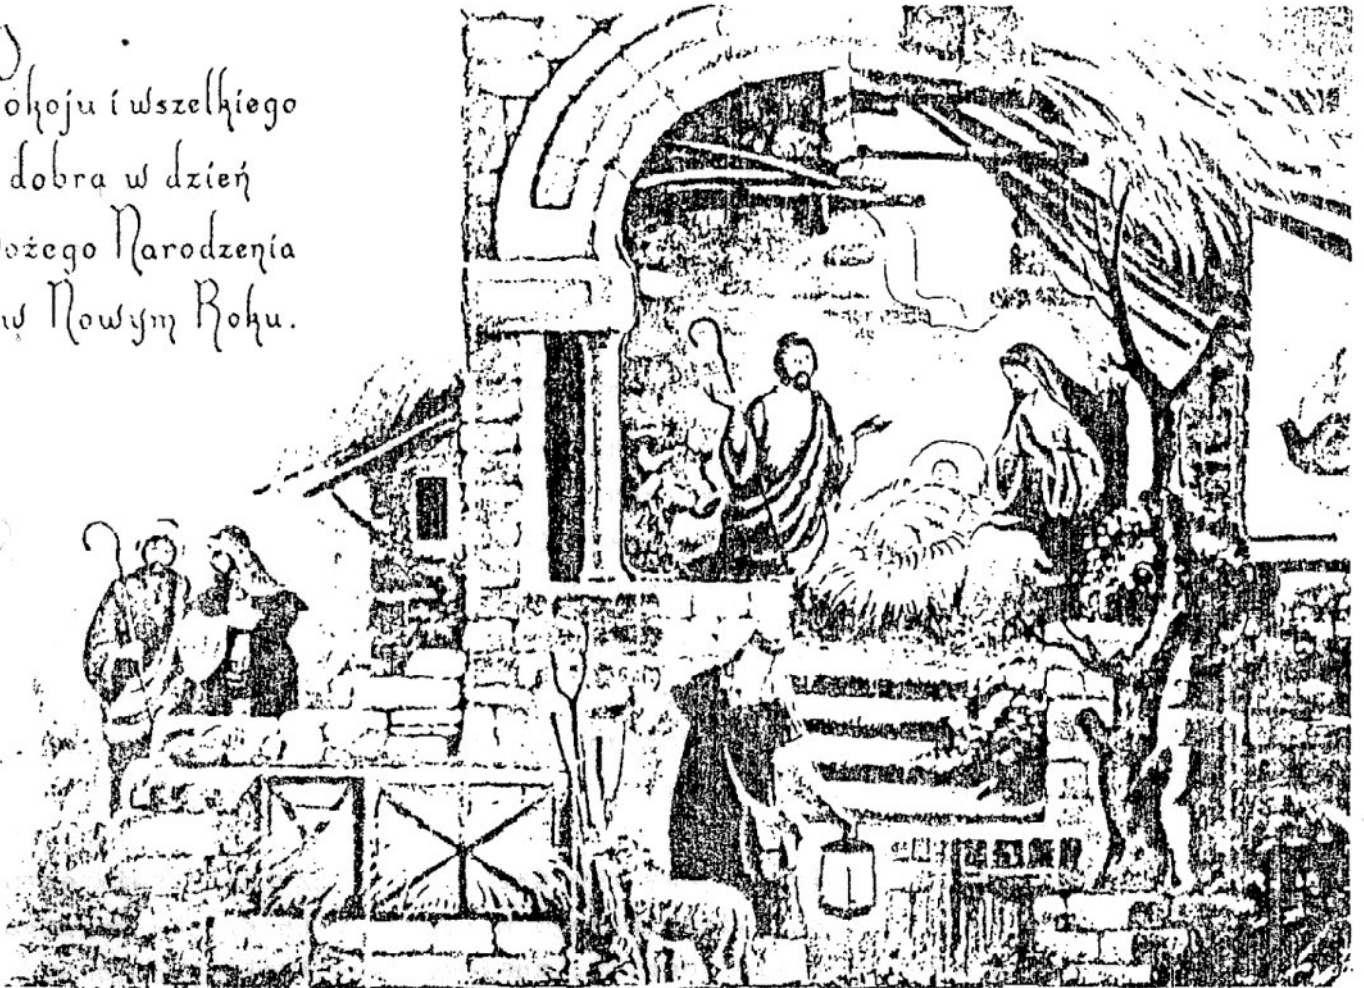 Pokoju i wszelkiego
dobra w dzień
Bożego Narodzenia
w Nowym Roku.